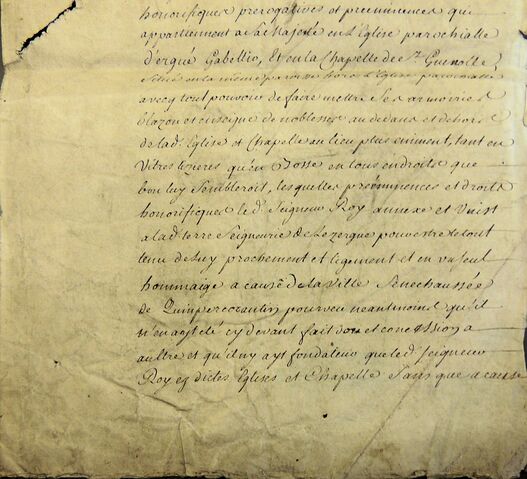 honorifiques prerogatives et preeminences qui
appartiennent a Sa Majesté en L'Eglise parochialle
d'ergué Gabellio, Et en la Chapelle de St. Guenolle
Scitué en la meme paroisse hors L'Eglise parochialle
avecq tout pouvoir de faire mettre Ses armoiries
blazon et enseigne de noblesse, au dedans et dehors
de lad. Eglise et Chapelle au lieu plus eminent, tant en
Vitres lizieres qu'en bosse en tous endroits que
bon luy Sembleroit, lesquelles préeminences et droits
honorifiques led. Seigneur Roy annexe et Unist
a lad. terre Seigneurie de Lezergue pour estre le tout
tenu de luy prochement et ligement et en un Seul
hommaige a cause de la Ville Senechaussée
de Quimpercorantin pourveu neantmoins qu'il
n'en aye esté cy devant fait don et concession a
aultre et qu'il ny ayt fondateur que led. Seigneur
Roy es dictes Eglises et Chapelle Sans que a cause